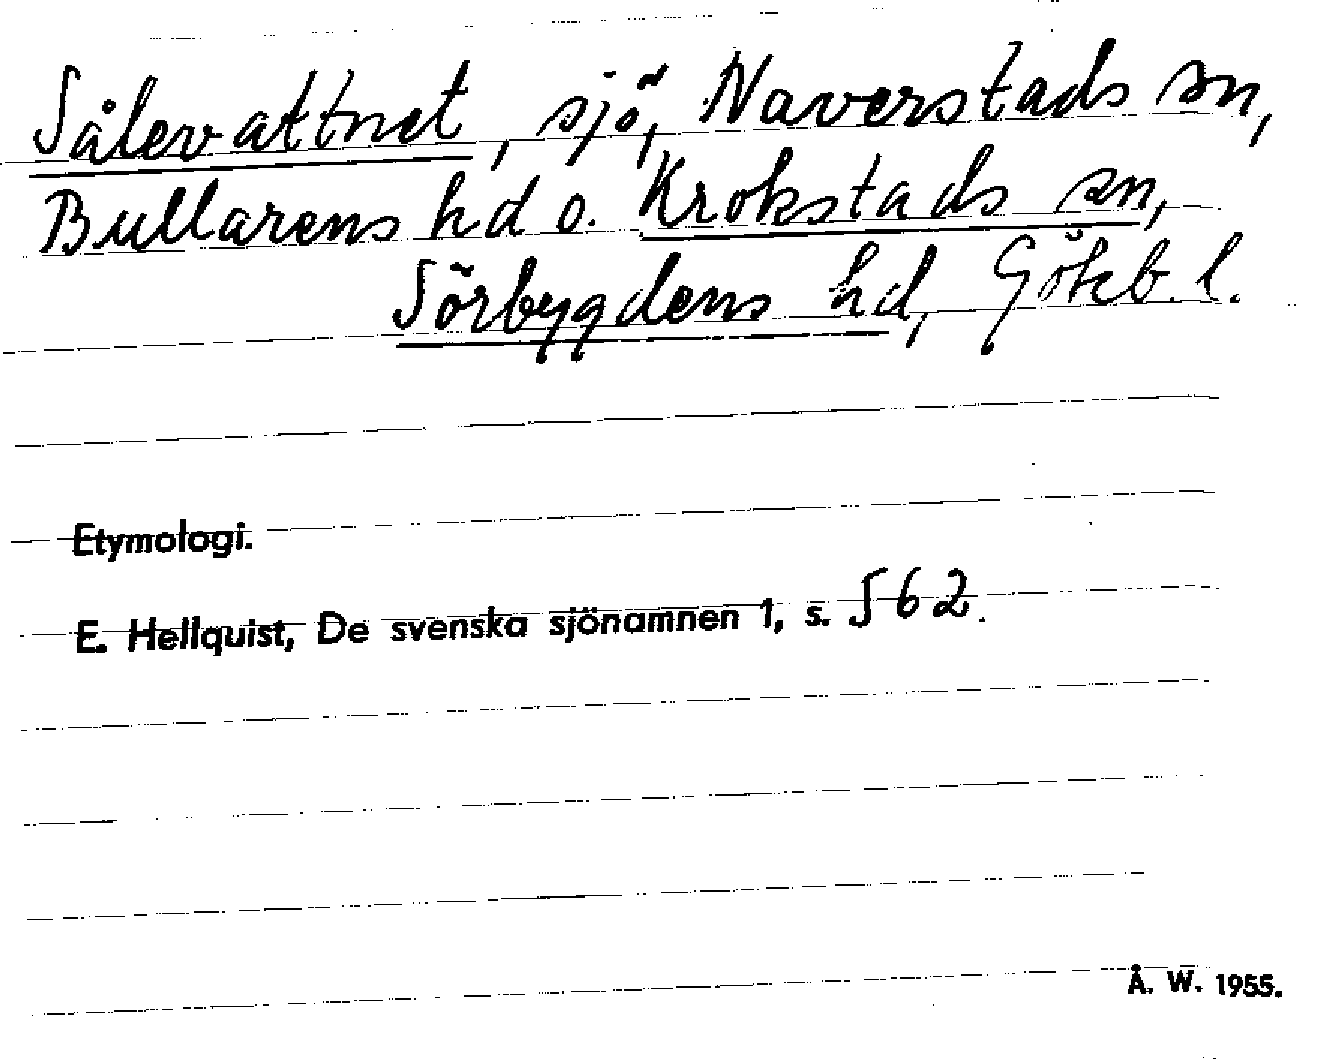 Sålevattnet, sjö, Naverstads sn,
Bullarens hd o. Krokstads sn,
Sörbygdens hd, Göteb. l.
Etymologi.
E. Hellquist, De svenska sjönamnen 1, s. 562.
Å. W. 1955.